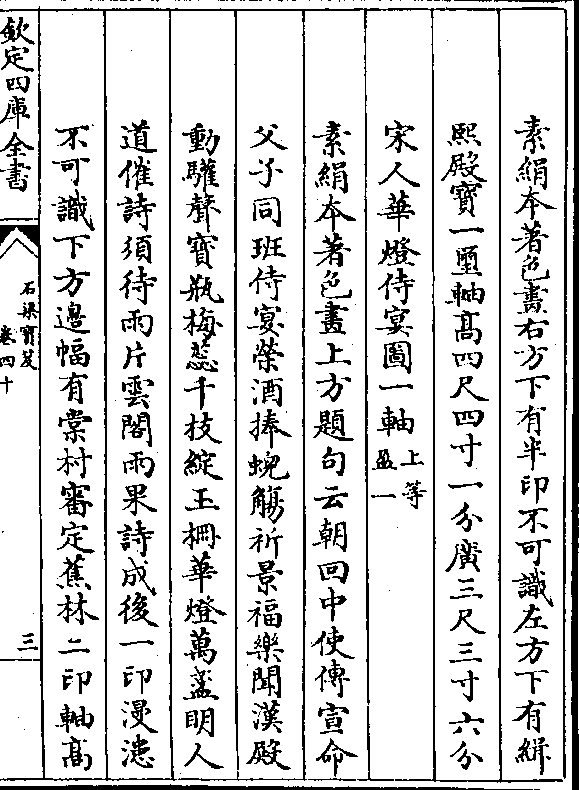 素絹本著色畫右方下有半印不可識左方下有緝
熙殿寶一璽軸髙四尺四寸一分廣三尺三寸六分
宋人華燈侍宴圖一軸上等盈一
素絹本著色畫上方題句云朝回中使傳宣命
父子同班侍宴榮酒捧蜺觴祈景福樂聞漢殿
動驩聲寶瓶梅蕊千枝綻玉栅華燈萬盞明人
道催詩須待雨片雲閣雨果詩成後一印漫漶
不可識下方邊幅有棠村審定蕉林二印軸髙
欽定四庫全書
石渠寶笈
卷四十
三